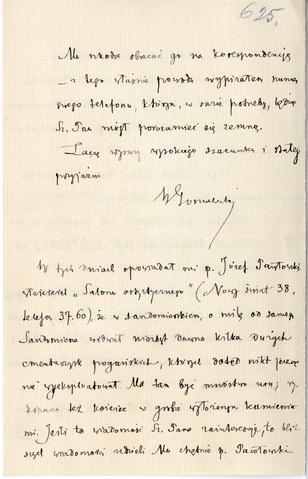 625.
Mu szkoda obarcać go na korespondencję
_ z tego właśnie powodu wypisałem numer
swego telefonu, którym, w razie potrzeby, będzie
Sz. Pan mógł porozumieć się zemną.
Łączę wyrazy wysokiego szacunku i stałej
przyjaźni
W tych dniach opowiadał mi p. Józef Pawłowski
właściciel „Salonu artystycznego" (Nowy Świat 38,
telefon 37.60), że w Sandomierskiem, o milę od samego
Sandomierza widział niezbyt dawno kilka dużych
cmentarzysk pogańskich, których dotąd nikt jeszcze
nie wyeksploatował. Ma tam być mnóstwo urn;
też kościec w grobie wyłożonym kamienia-
mi. Jeśli ta wiadomość Sz. Pana zainteresuje, to bliż-
szych wiadomości udzieli Mu chętnie p. Pawłowski.